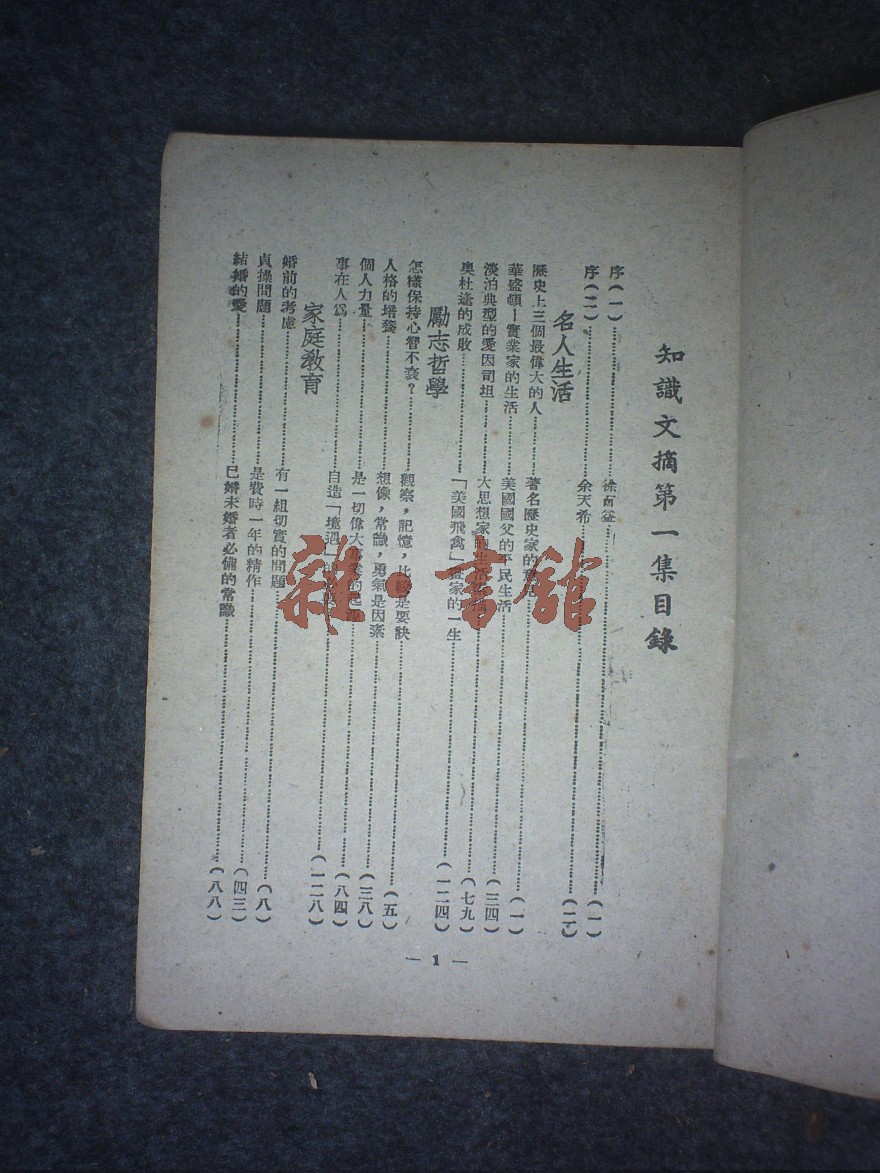 知識文摘第一集目錄
序(一)徐百益(一)
序(二)余天希(二)
名人生活
歷史上三個最偉大的人 著名歷史家的意(一)
華盛頓—實業家的生活 美國國父的平民生活(三四)
淡泊典型的愛因司坦 大思想家的生活(七九)
奧杜遜的成敗「美國飛禽」畫家的一生(一二四)
勵志哲學
怎樣保持心智不衰?觀察,記憶,比較是要訣(五)
人格的培養 想像,常識,勇氣是因素(三八)
個人力量 是一切偉大事業的起(八四)
事在人爲 自造「境遇」的(一二八)
家庭教育
婚前的考慮 有一組切實的問題(八)
貞操問題 是費時一年的精作(四三)
結婚的愛 已婚未婚者必備的常識(八八)
— 1 —
雜·書館